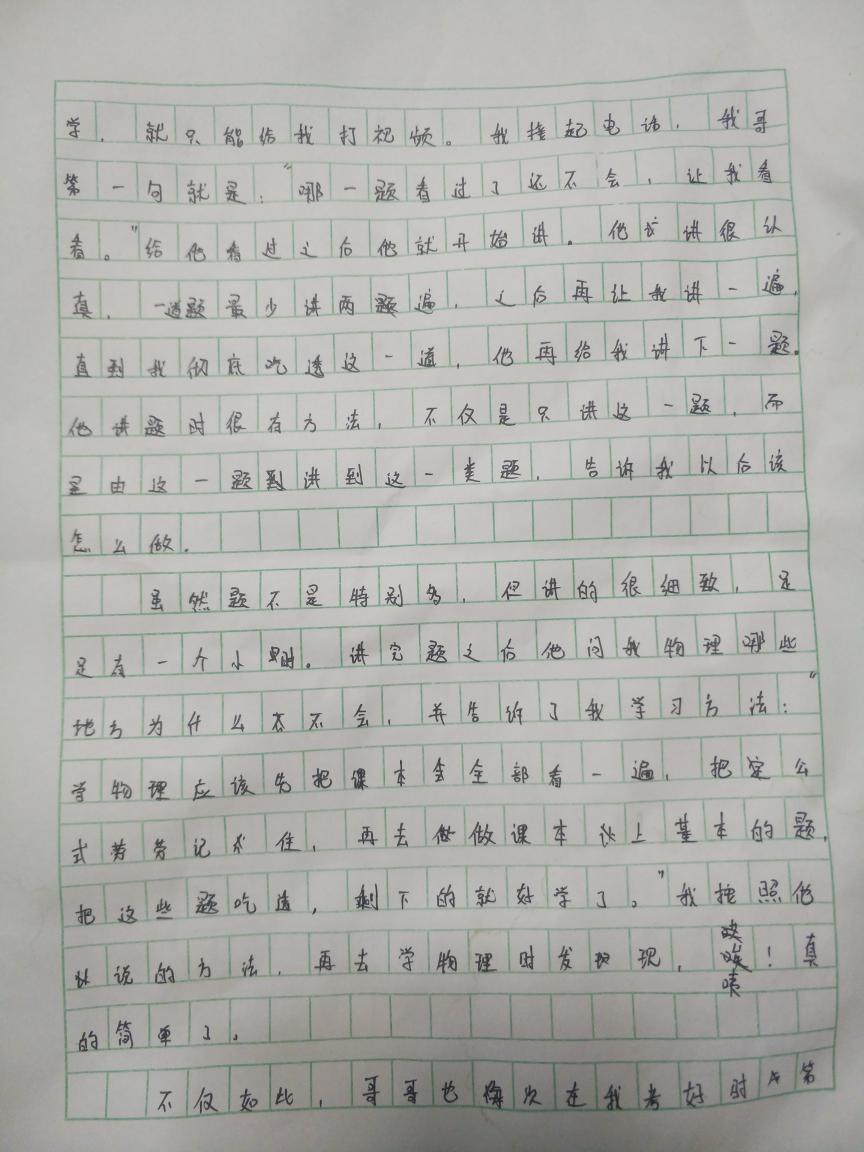 学，就只能给我打视频。我接起电话，我哥
第一句就是：“哪一题看过了还不会，让我看
看。”给他看过之后他就开始讲。他讲很认
真，一道题最少讲两题遍，之后再让我讲一遍，
直到我彻底吃透这一道，他再给我讲下一题。
他讲题时很有方法，不仅是只讲这一题，而
是由这一题到讲到这一类题，告诉我以后该
怎么做。
虽然题不是特别多，但讲的很细致，足
足有一个小时。讲完题之后他问我物理哪些
地方为什么不会，并告诉了我学习方法：“
学物理应该先把课本全部看一遍，把定公
式劳劳记住，再去做做课本上基本的题，
把这些题吃透，剩下的就好学了。”我按照他
说的方法，再去学物理时发现，咦！真
的简单了。
不仅如此，哥哥也每次在我考好时第